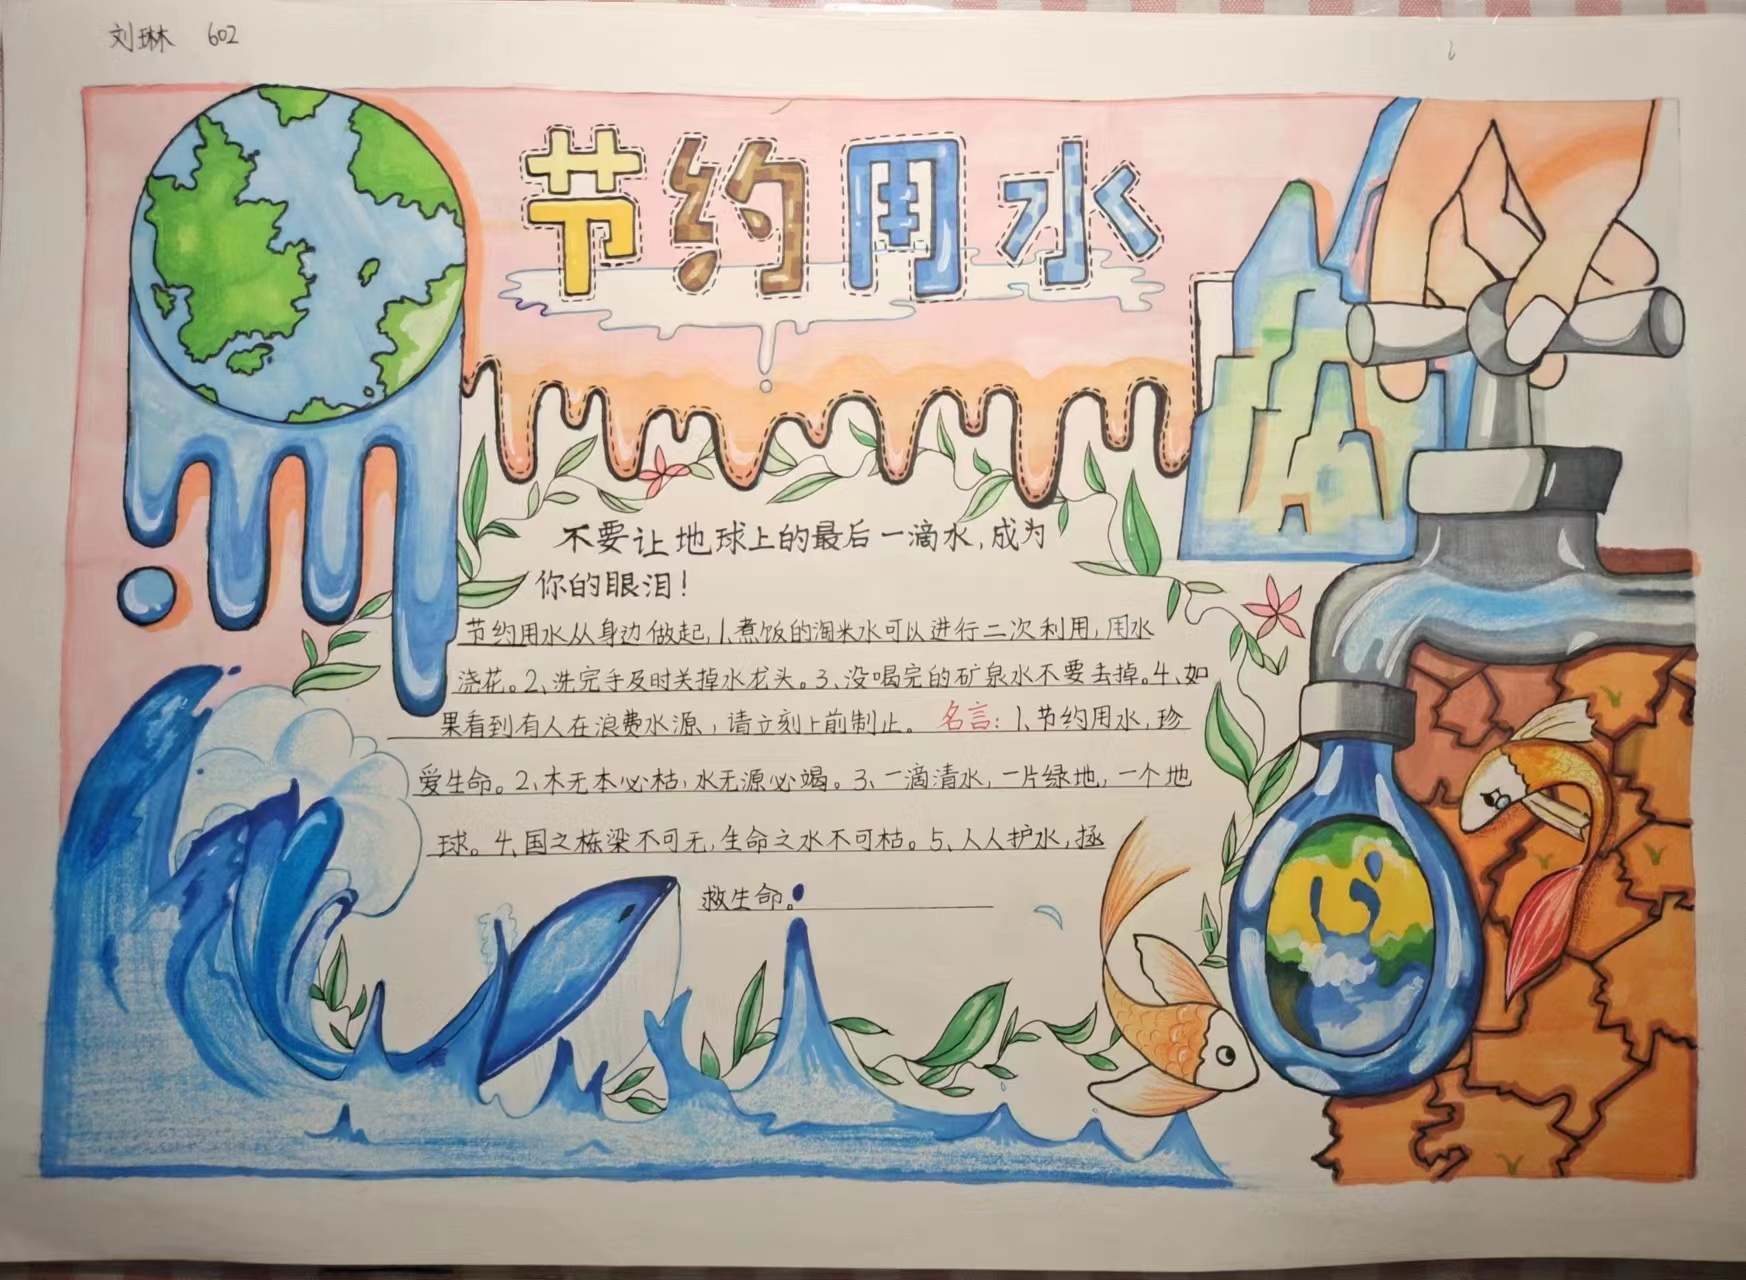 刘琳 602
节约用水
不要让地球上的最后一滴水,成为
你的眼泪!
节约用水从身边做起,1.煮饭的淘米水可以进行二次利用,用水
浇花。2、洗完手及时关掉水龙头。3、没喝完的矿泉水不要去掉。4、如
果看到有人在浪费水源,请立刻上前制止。名言:1、节约用水,珍
爱生命。2、木无本必枯,水无源必竭。3、一滴清水,一片绿地,一个地
球。4、国之栋梁不可无,生命之水不可枯。5、人人护水,拯
救生命。